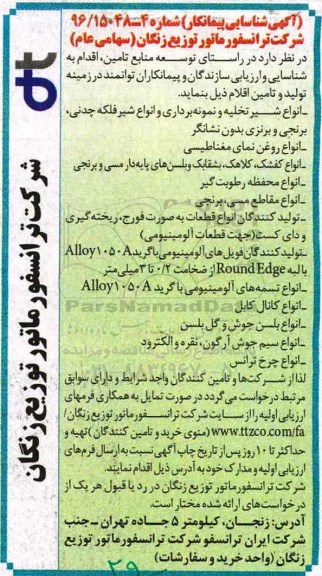 (آگهی شناسایی پیمانکار) شماره ۴-۹۶/۱۵۰۴۸
شرکت ترانسفورماتور توزیع زنگان (سهامی عام)
در نظر دارد در راستای توسعه منابع تامین، اقدام به
شناسایی و ارزیابی سازندگان و پیمانکاران توانمند در زمینه
تولید و تامین اقلام ذیل بنماید.
-انواع شیر تخلیه و نمونه برداری و انواع شیر فلکه چدنی،
برنجی و برنزی بدون نشانگر
-انواع روغن نمای مغناطیسی
-انواع کفشک، کلاهک، بشقابک و بلسن های پایه دار مسی و برنجی
-انواع محفظه رطوبت گیر
-انواع مقاطع مسی، برنجی
-تولید کنندگان انواع قطعات به صورت فورج، ریخته گری
و دای کست (جهت قطعات آلومینیومی)
-تولید کنندگان فویل های آلومینیومی با گرید Alloy1050A
با لبه Round Edge از ضخامت ۰/۲ تا ۳ میلی متر
-انواع تسمه های آلومینیومی با گرید Alloy1050A
-انواع کانال کابل
-انواع بلسن جوش و گل بلسن
-انواع سیم جوش آرگون، نقره و الکترود
-انواع چرخ ترانس
لذا از شرکت ها و تامین کنندگان واجد شرایط و دارای سوابق
مرتبط درخواست می گردد در صورت تمایل به همکاری فرمهای
ارزیابی اولیه را از سایت شرکت ترانسفورماتور توزیع زنگان/
www.ttzco.com/fa (منوی خرید و تامین کنندگان) تهیه و
حداکثر تا ۱۰ روز پس از تاریخ چاپ آگهی نسبت به ارسال فرم های
ارزیابی اولیه و مدارک خود به آدرس ذیل اقدام نمایند.
شرکت ترانسفورماتور توزیع زنگان در رد یا قبول هر یک از
درخواست های ارائه شده مختار است.
آدرس: زنجان، کیلومتر ۵ جاده تهران - جنب
شرکت ایران ترانسفو شرکت ترانسفورماتور توزیع
زنگان (واحد خرید و سفارشات)
dt
شرکت ترانسفورماتور توزیع زنگان
ParsNamadData
۲۹